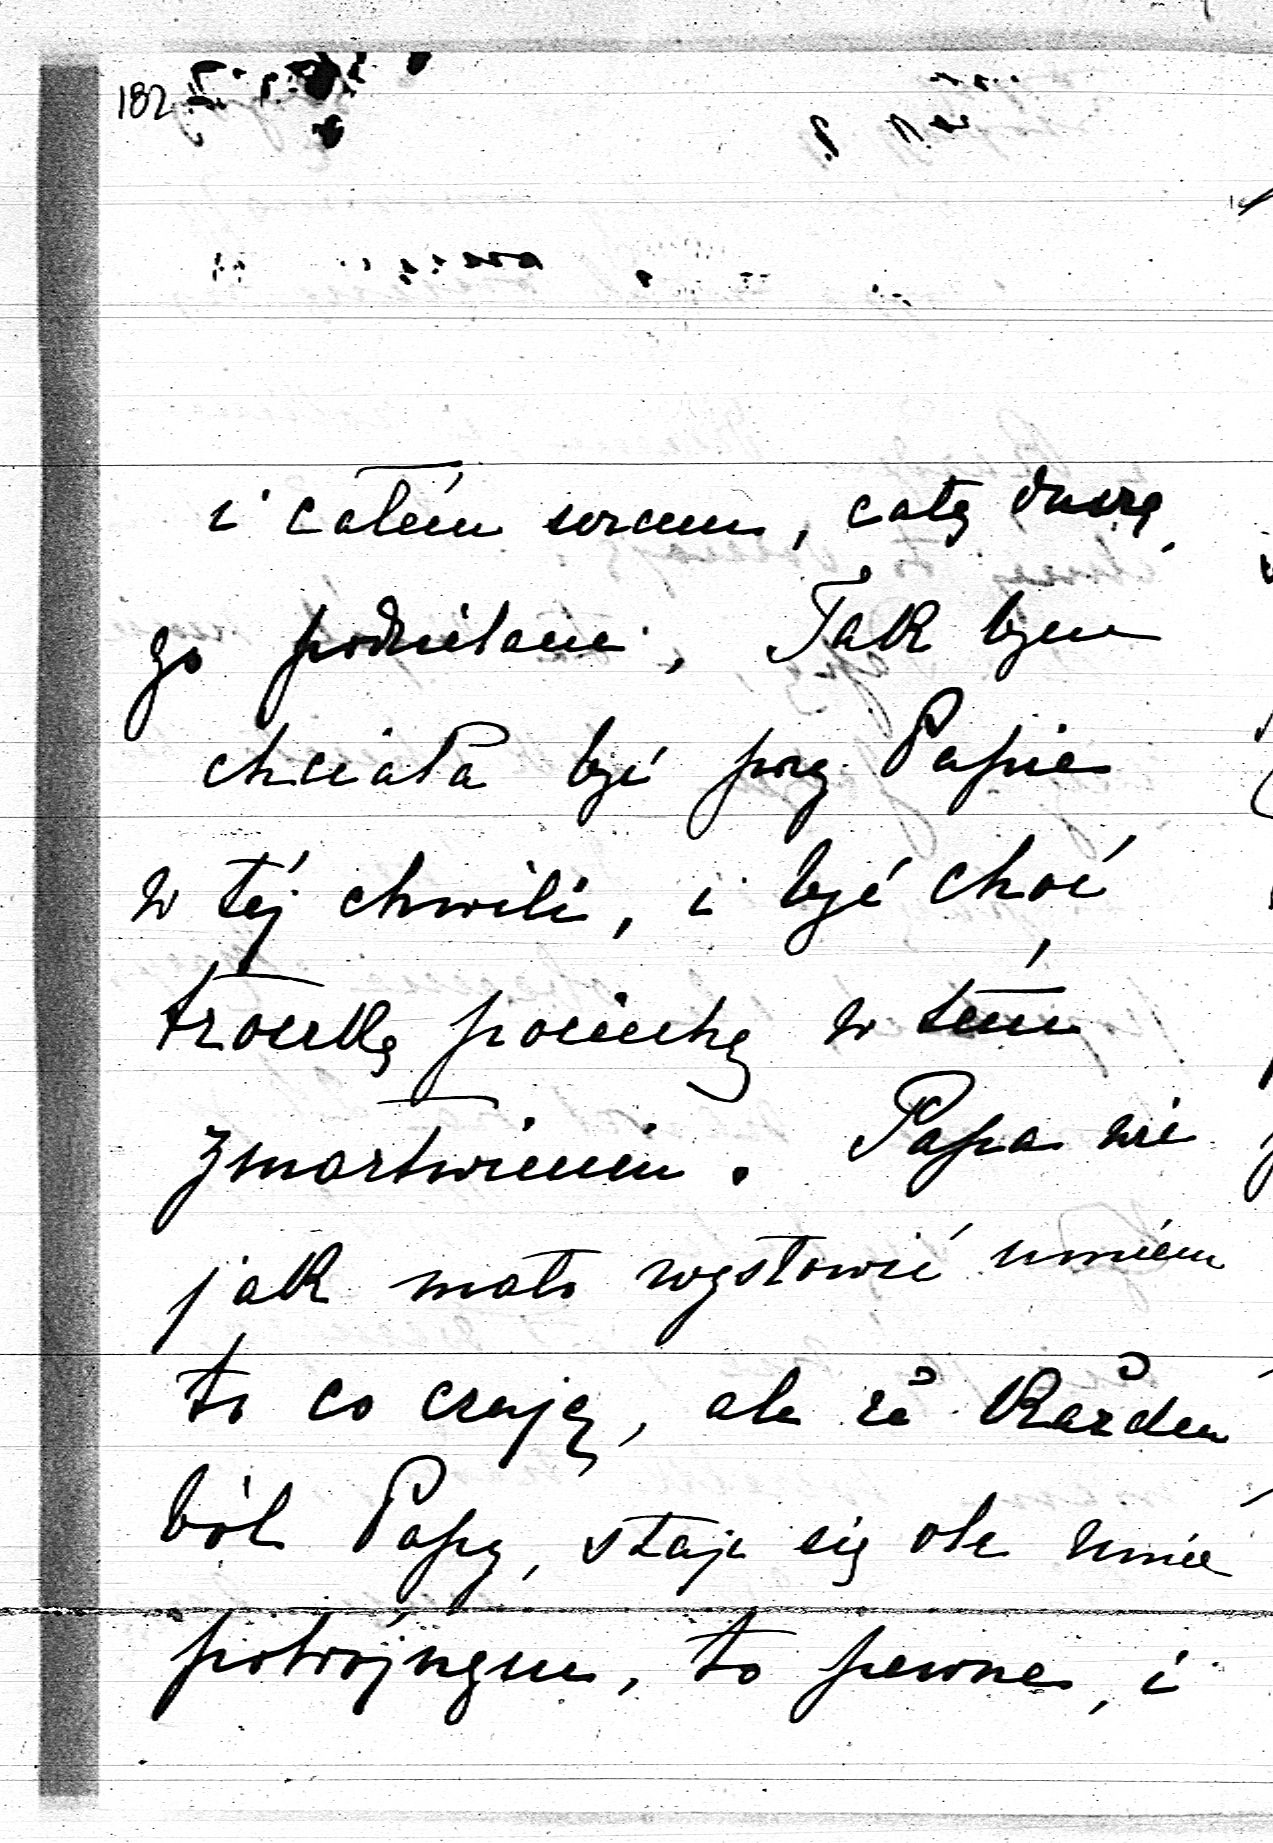 182
i całém sercem, całą duszą
go podzielam, Tak bym
chciała być przy Papie
w téj chwili, i być choć
troszkę pociechą w tém
zmartwieniu. Papa wie
jak mało wysłowić umiém
to co czuję, ale że każden
ból Papy, staje się dla mnie
potrójnym, to pewne, i